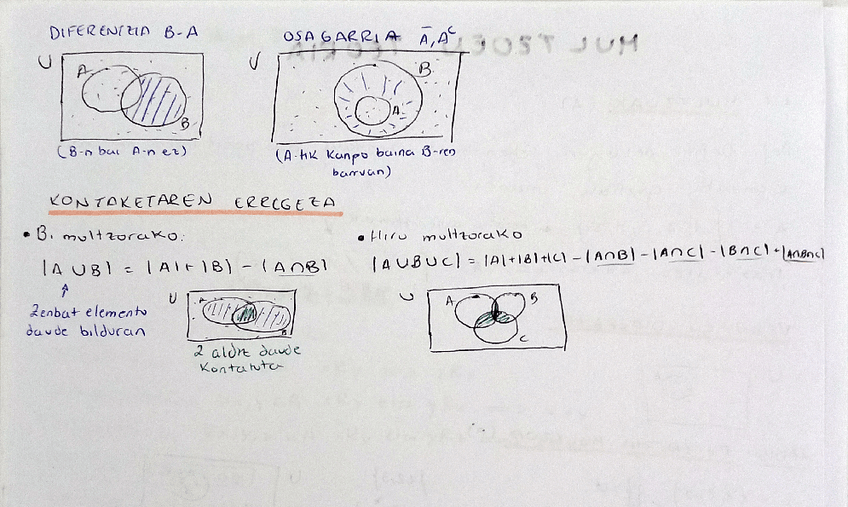 DIFERENTZIA B-A
U
A
B
(B-n bai A-n ez)
OSAGARRIA Ā, Aᶜ
U
B
A
(A-tik kanpo baina B-ren
barruan)
KONTAKETAREN ERREGEZA
• Bi multzorako:
|A∪B| = |A|+|B| - |A∩B|
Zenbat elemento
daude bilduran
U
A
B
2 aldiz daude
kontatuta
• Hiru multzorako
|A∪B∪C| = |A|+|B|+|C| - |A∩B| - |A∩C| - |B∩C| + |A∩B∩C|
U
A
B
C